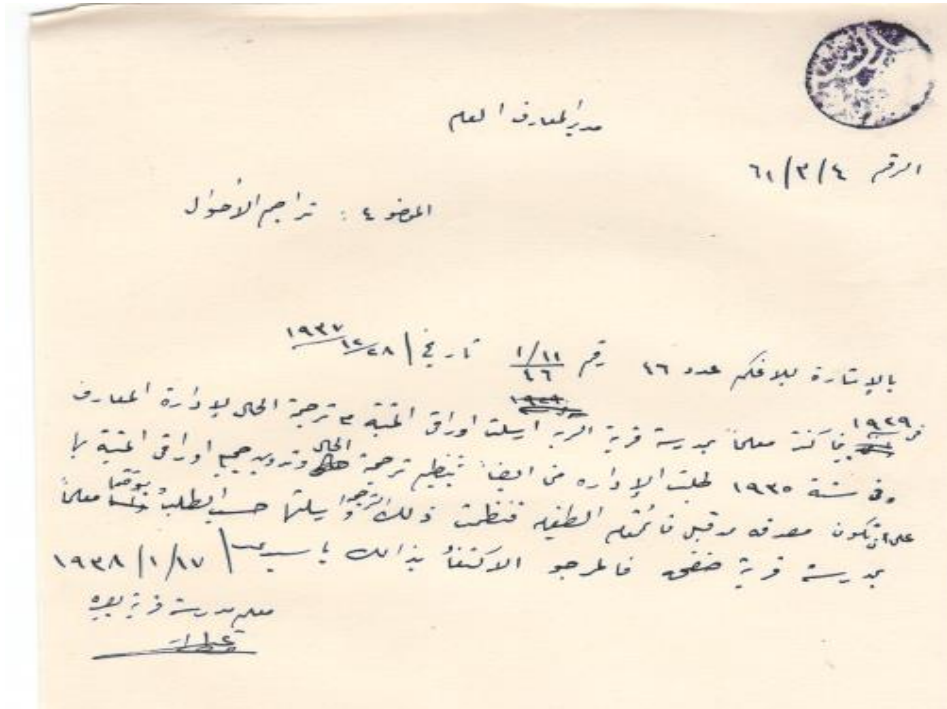 مدير المعارف العام
الرقم ٦١/٣/٤
الموضوع : تراجم الأحوال
بالإشارة لبلاغكم عدد ٤٦ رقم ١/١١ / ٤٦ تاريخ ٢٨/١٢/١٩٣٧
في ١٩٢٩ كنت معلماً بمدرسة قرية ارسلت اوراقي المثبتة مع ترجمة الحال لإدارة المعارف
وفي سنة ١٩٣٥ طلبت الإدارة مني ايضاً تنظيم ترجمة الحال جميع اوراقي المثبتة بها
على ان تكون مصدقه من قبل قائمقام الطفيله فنظمت ذلك وارسلتها حسب الطلب معلماً
بمدرسة قرية فالمرجو الاكتفاء بذالك يا سيدي ١٧/١/١٩٣٨
معلم مدرسة قرية